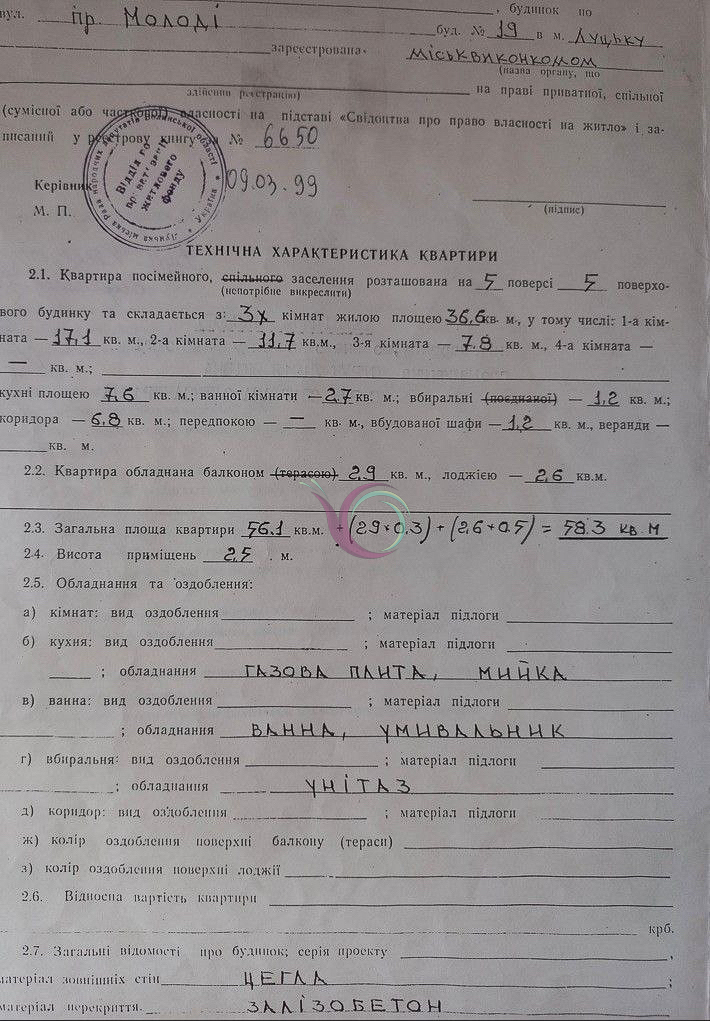 вул. пр. Молоді, будинок по
буд. № 19 в м. Луцьку
зареєстрована міськвиконкомом
(назва органу, що
здійснив реєстрацію) на праві приватної, спільної
(сумісної або часткової) власності на підставі «Свідоцтва про право власності на житло» і за-
писаний у реєстрову книгу № 6650
Керівник 09.03.99
М. П. (підпис)
Відділ приватизації житлового фонду
ТЕХНІЧНА ХАРАКТЕРИСТИКА КВАРТИРИ
2.1. Квартира посімейного, спільного заселення розташована на 5 поверсі 5 поверхо-
(непотрібне викреслити)
вого будинку та складається з: 3х кімнат жилою площею 36,6 кв. м., у тому числі: 1-а кім-
ната — 17,1 кв. м., 2-а кімната — 11,7 кв.м., 3-я кімната — 7,8 кв. м., 4-а кімната —
— кв. м.;
кухні площею 7,6 кв. м.; ванної кімнати — 2,7 кв. м.; вбиральні (поєднаної) — 1,2 кв. м.;
коридора — 6,8 кв. м.; передпокою — — кв. м., вбудованої шафи — 1,2 кв. м., веранди —
кв. м.
2.2. Квартира обладнана балконом (терасою) 2,9 кв. м., лоджією — 2,6 кв.м.
2.3. Загальна площа квартири 56.1 кв.м. + (2.9×0.3) + (2,6×0.5) = 58.3 кв м
2.4. Висота приміщень 2,5 . м.
2.5. Обладнання та оздоблення:
а) кімнат: вид оздоблення ; матеріал підлоги
б) кухня: вид оздоблення ; матеріал підлоги
; обладнання ГАЗОВА ПЛИТА, МИЙКА
в) ванна: вид оздоблення ; матеріал підлоги
; обладнання ВАННА, УМИВАЛЬНИК
г) вбиральня: вид оздоблення ; матеріал підлоги
; обладнання УНІТАЗ
д) коридор: вид оздоблення ; матеріал підлоги
ж) колір оздоблення поверхні балкону (тераси)
з) колір оздоблення поверхні лоджії
2.6. Відносна вартість квартири
крб.
2.7. Загальні відомості про будинок; серія проекту ,
матеріал зовнішніх стін ЦЕГЛА ;
матеріал перекриття. ЗАЛІЗОБЕТОН